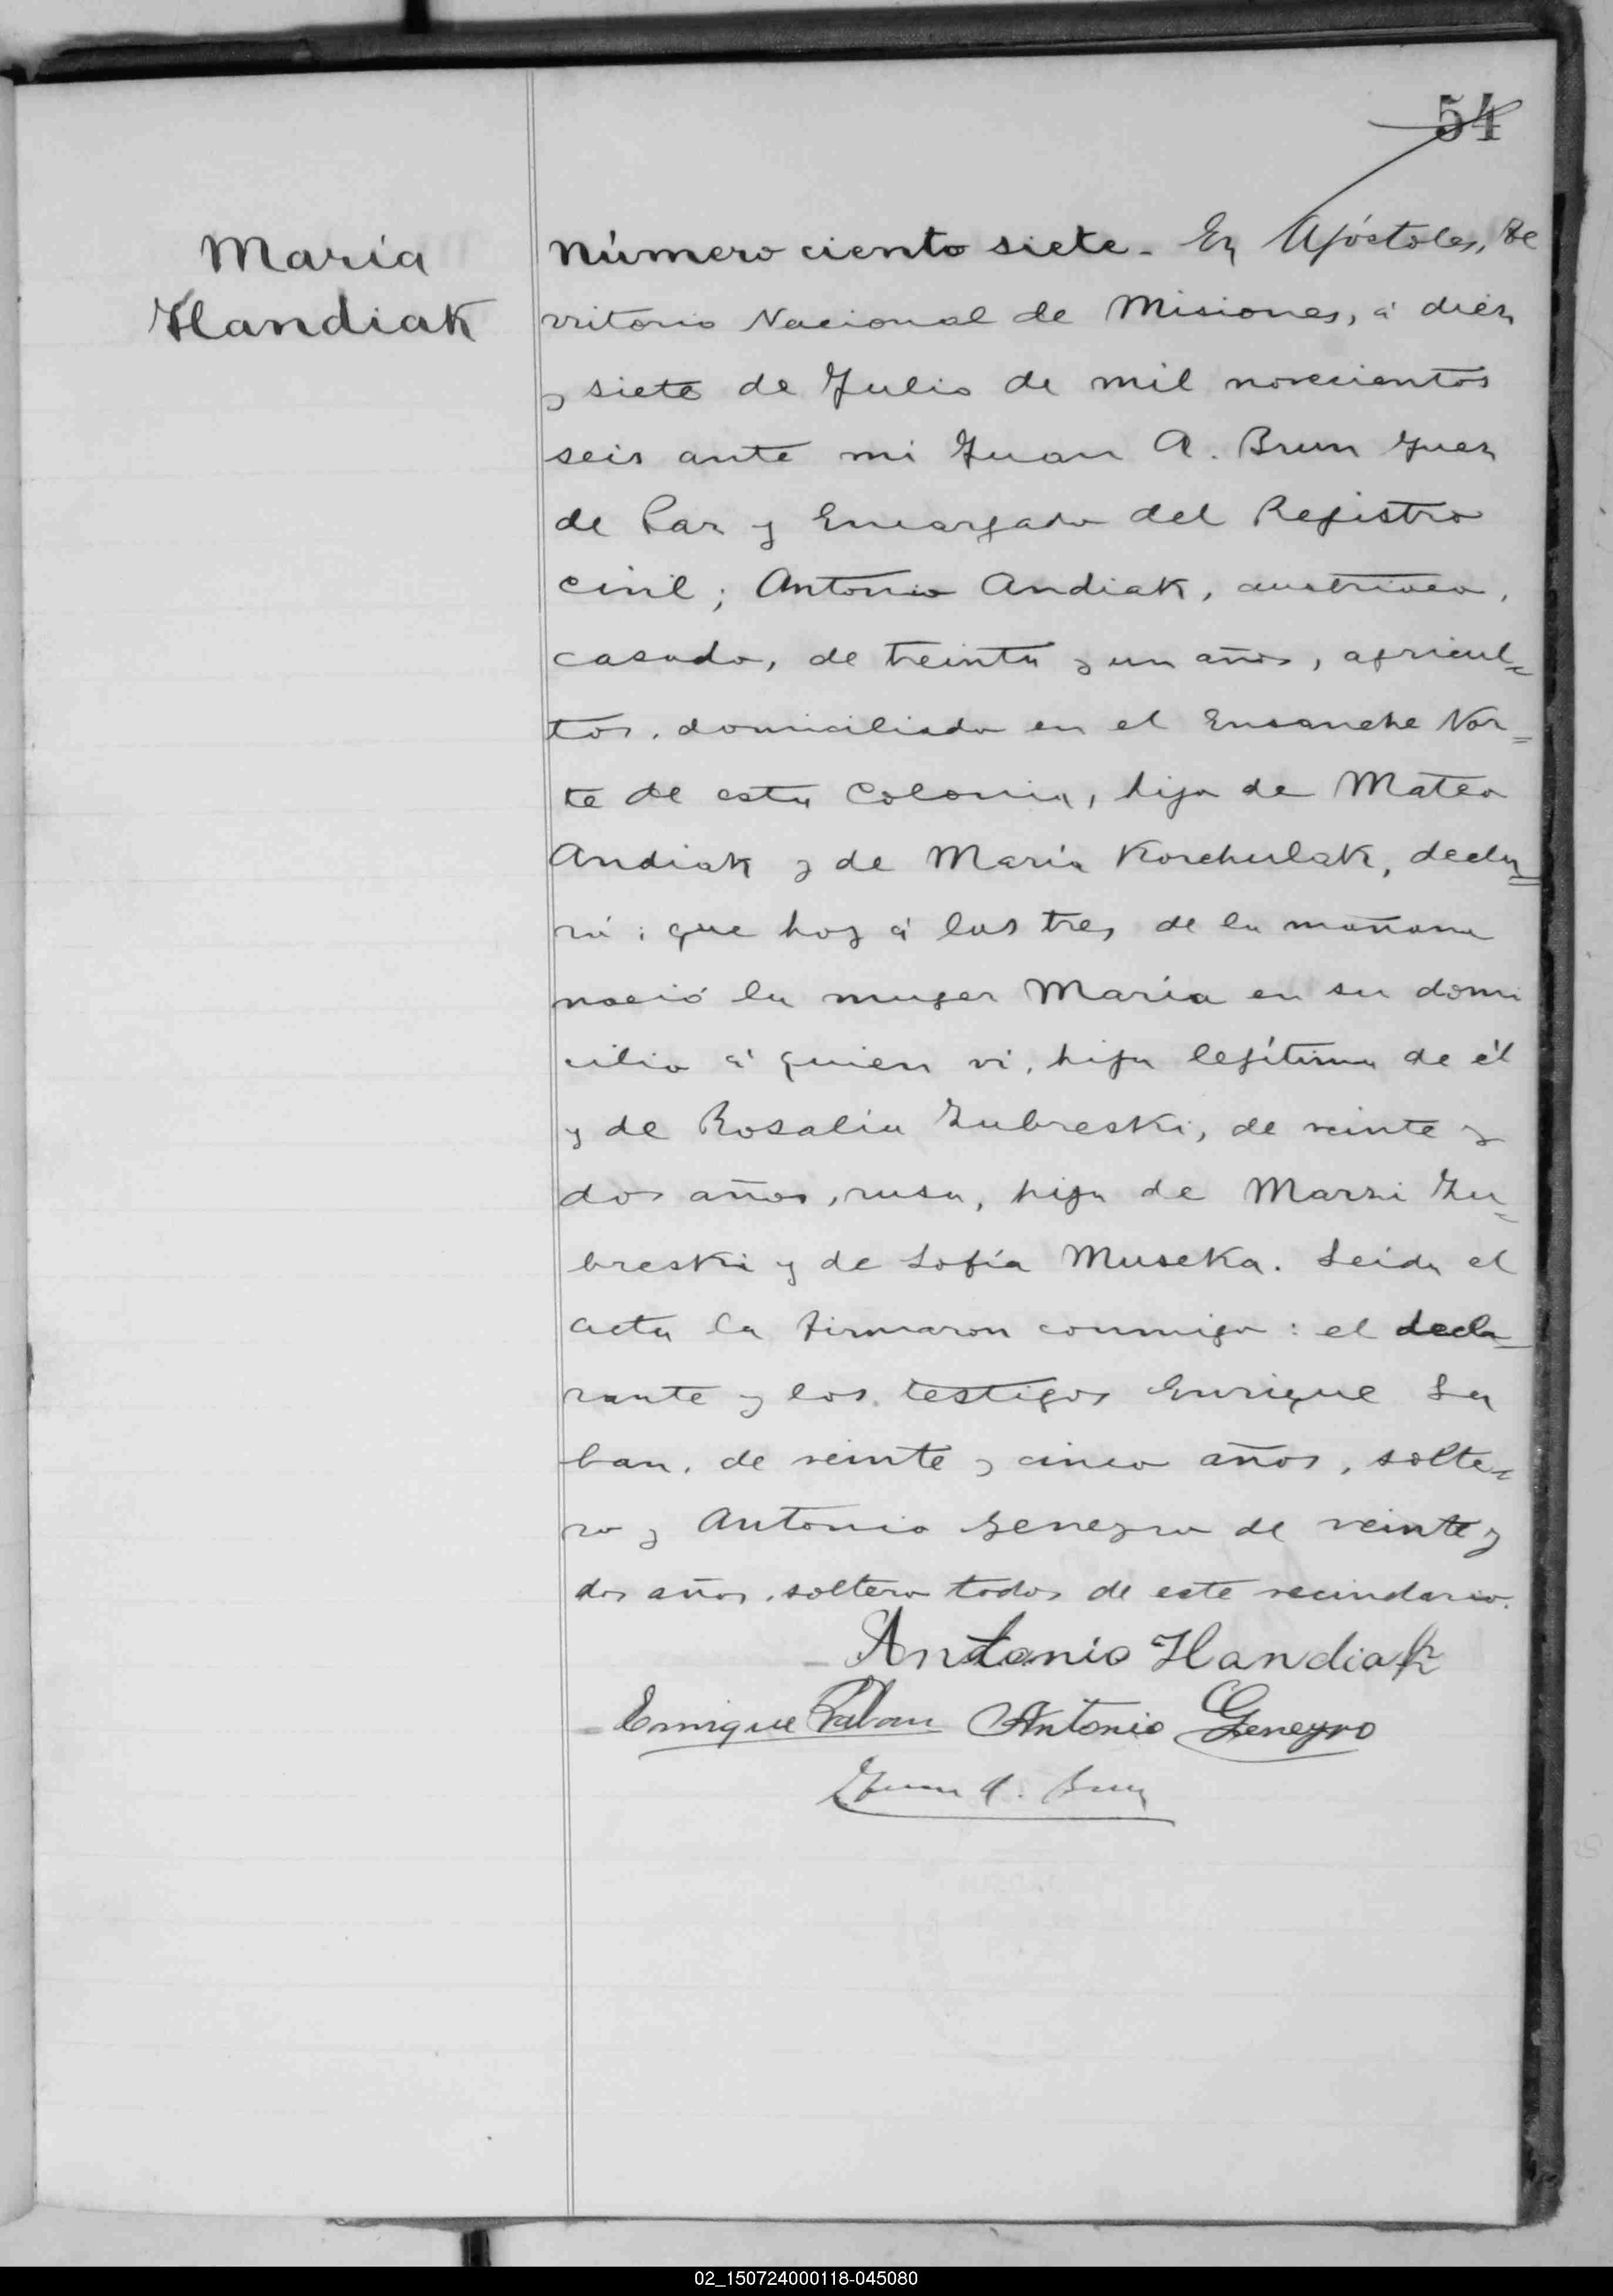 54
María
Handiak
Número ciento siete. En Apóstoles, Te
rritorio Nacional de Misiones, á diez
y siete de Julio de mil novecientos
seis ante mi Juan A. Brun Juez
de Paz y Encargado del Registro
civil; Antonio Andiak, austriaco,
casado, de treinta y un años, agricul=
tor, domiciliado en el Ensanche Nor=
te de esta Colonia, hijo de Mateo
Andiak y de María Korchulak, decla=
ró: que hoy á las tres de la mañana
nació la muger María en su domi
cilio á quien vi, hija legítima de él
y de Rosalia Zubreski, de veinte y
dos años, rusa, hija de Marzi Zu=
breski y de Sofía Museka. Leida el
acta la firmaron conmigo: el decla=
rante y los testigos Enrique La
ban, de veinte y cinco años, solte=
ro y Antonio Geneyro de veinte y
dos años, soltero todos de este vecindario.
Antonio Handiak
Enrique Antonio Geneyro
Juan A. Brun
02_150724000118-045080